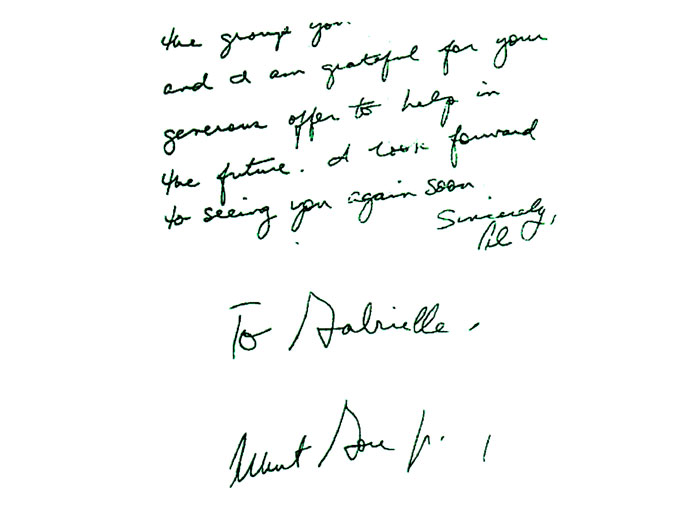 the group you.
and I am grateful for your
generous offer to help in
the future. I look forward
to seeing you again soon
Sincerely,
Al
To Gabrielle,
Albert Gore Jr.,